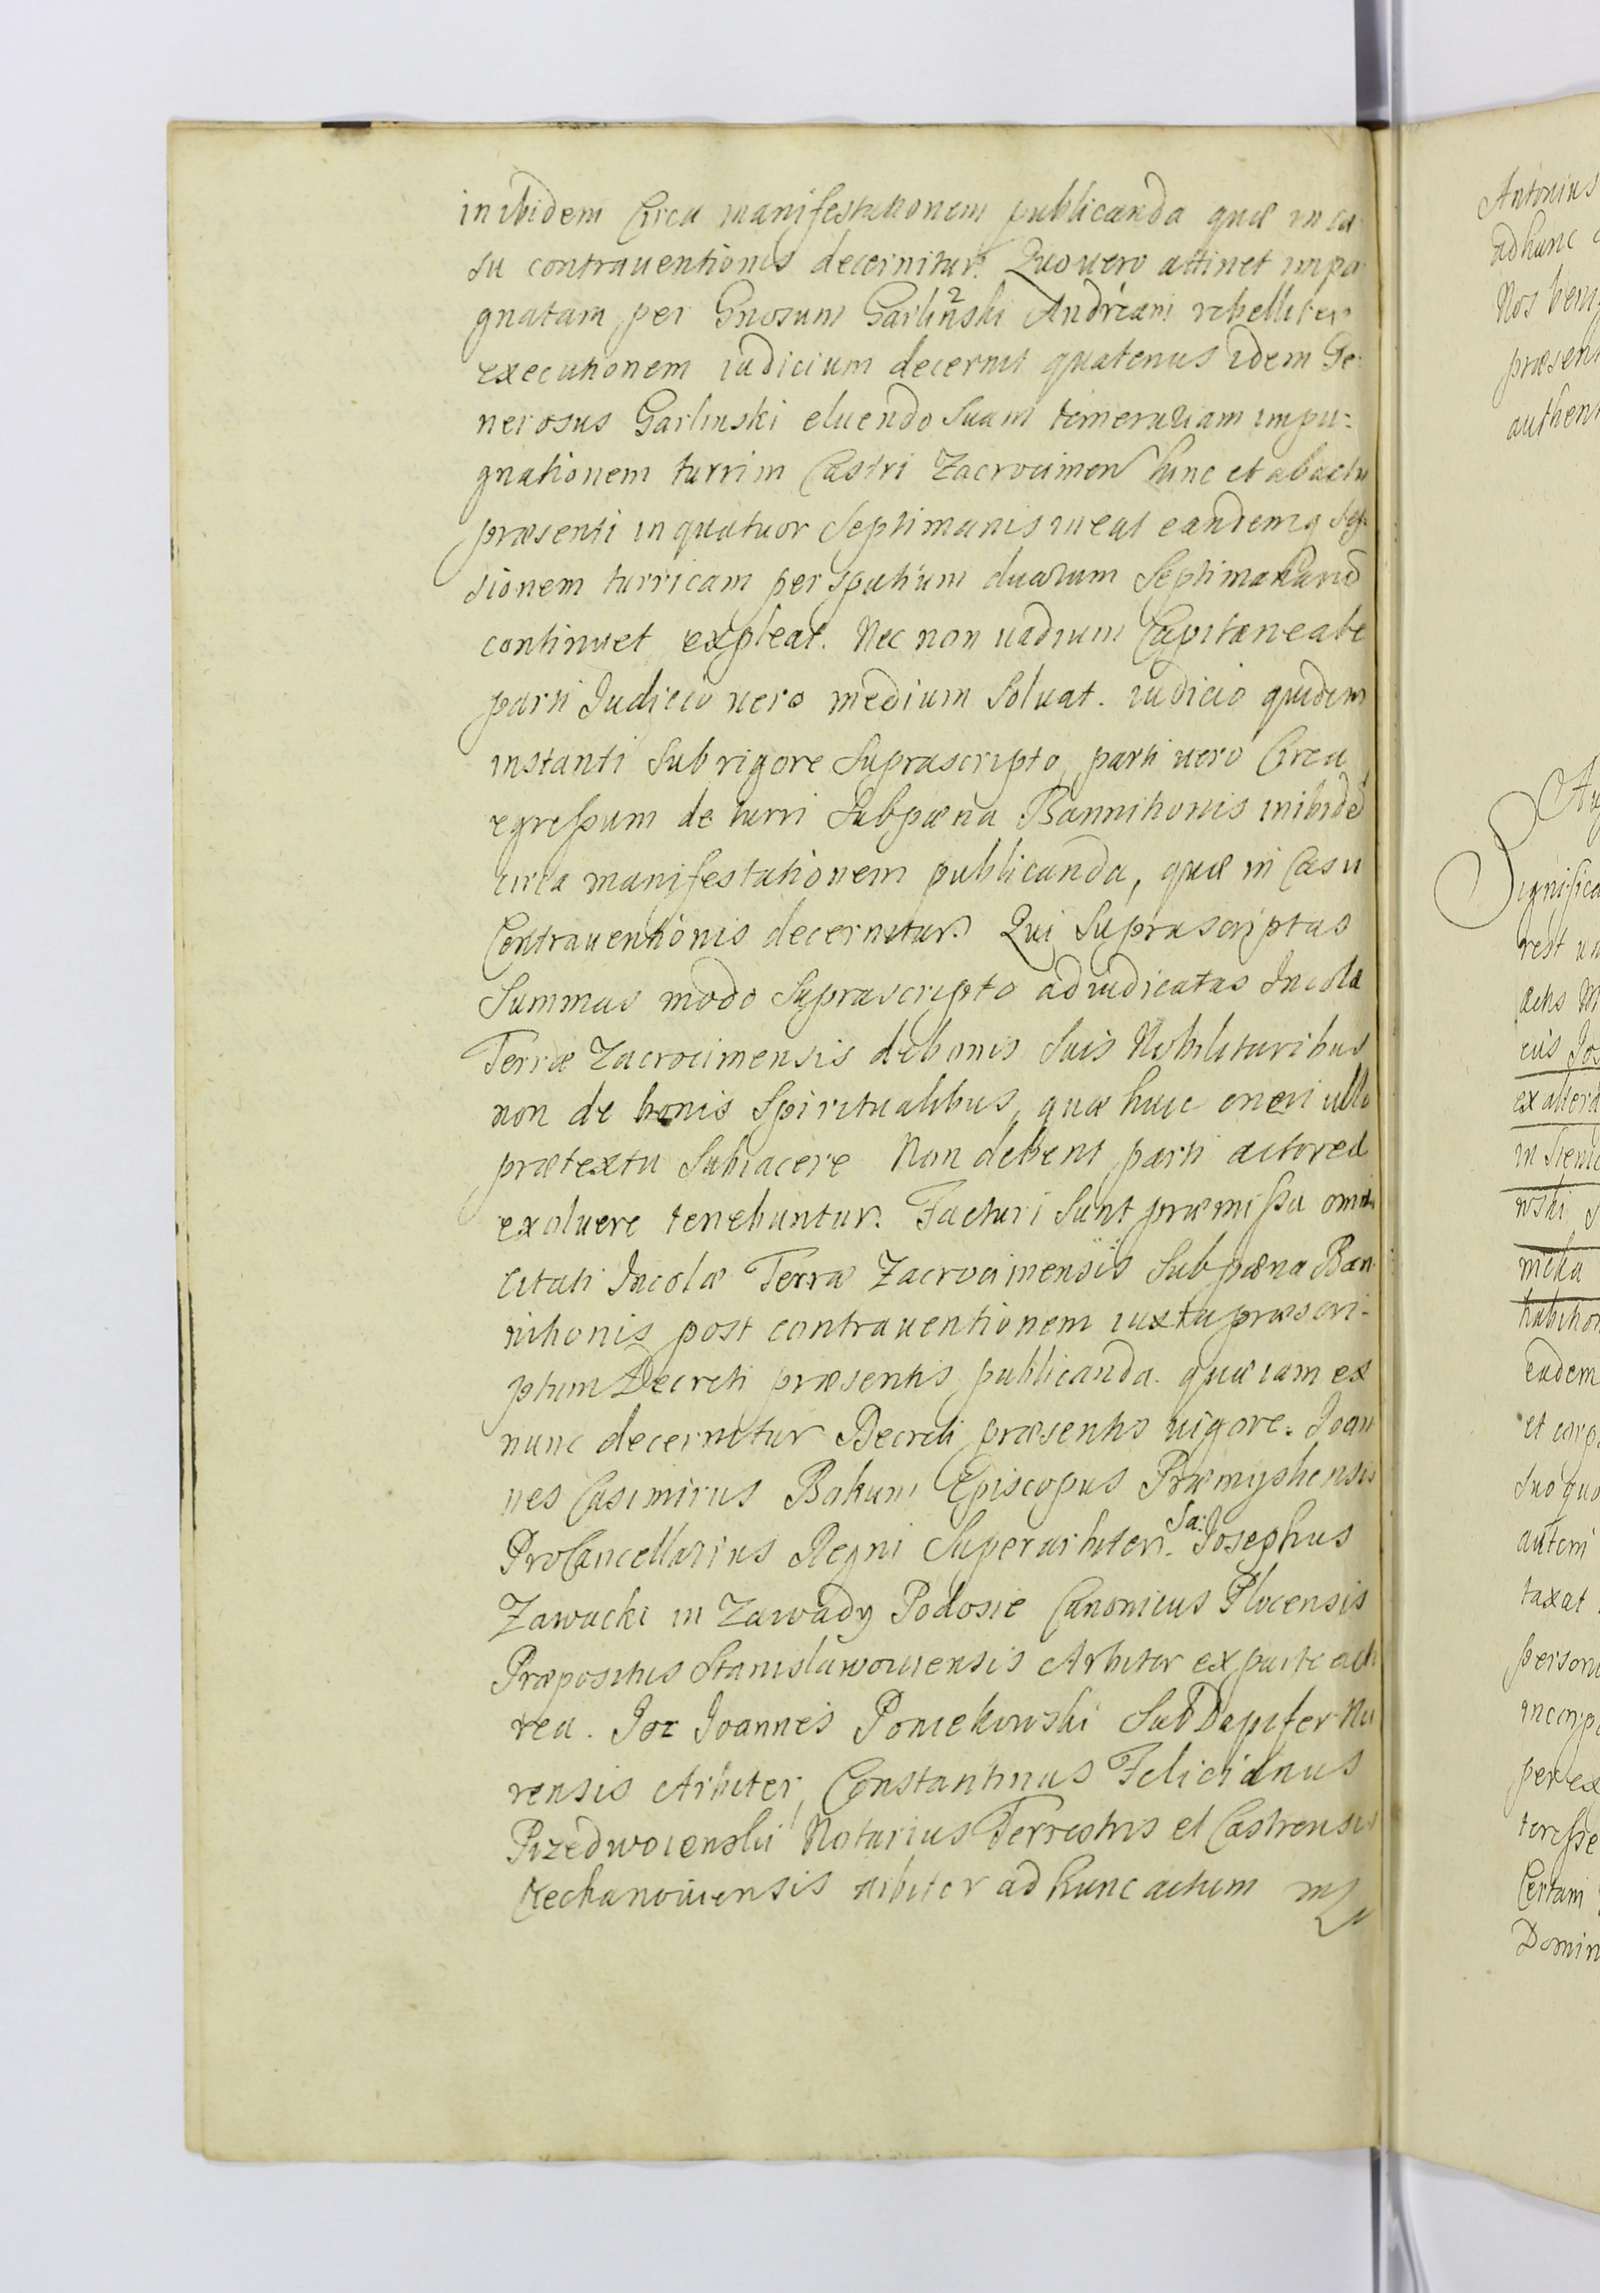 inibidem Circa manifestationem publicanda quæ in ca
su contrauentionis decernitur. Quo uero attinet impu
gnatam per Gnosum Garlinski Andream rebelliter
executionem iudicium decernit quatenus idem Ge
nerosus Garlinski eluendo Suam temerariam impu=
gnationem turrim Castri Zacrocimen hinc et ab actu
præsenti in quatuor Septimanis ineat eandemq Ses
sionem turricam per spatium duarum Septimanarū
continuet expleat. Nec non uadium Capitaneale
parti Judicio uero medium Soluat. iudicio quidem
instanti Sub rigore Suprascripto, parti uero Circa
egressum de turri Sub pæna Bannitionis inibidē
circa manifestationem publicanda, quæ in Casu
Contrauentionis decernitur. Qui Suprascriptas
Summas modo Suprascripto adiudicatas Incolæ
Terræ Zacrocimensis de bonis Suis Nobilitaribus
non de bonis Spiritualibus, quæ huic oneri ullo
prætextu Subiacere Non debent parti actoreæ
exoluere tenebuntur. Facturi Sunt præmissa omnia
Citati Incolæ Terræ Zacrocimensis Sub pæna Ban
nitionis post contrauentionem iuxta præscri=
ptum Decreti præsentis publicanda. quæ iam ex
nunc decernitur Decreti præsentis uigore. Joan
nes Casimirus Bokum Episcopus Præmysliensis
ProCancellarius Regni Superarbiter. Ja: Josephus
Zawacki in Zawady Podosie Canonicus Plocensis
Præpositus Stanislawowiensis Arbiter ex parte acto
rea. Joz Joannes Poniekowski SubDapifer Nu
rensis Arbiter, Constantinus Felicianus
Przedwoienski Notarius Terrestris et Castrensis
Ciechanouiensis arbiter ad hunc actum mp
Antonius
ad hunc
Nos
præsen
authen
Significa
rest
actis
eius Jos
ex altera
in
wski
nicka
habition
eadem
et corp
suo quo
autem
taxat
person
incorp
per ex
teresse
Certam
Domin